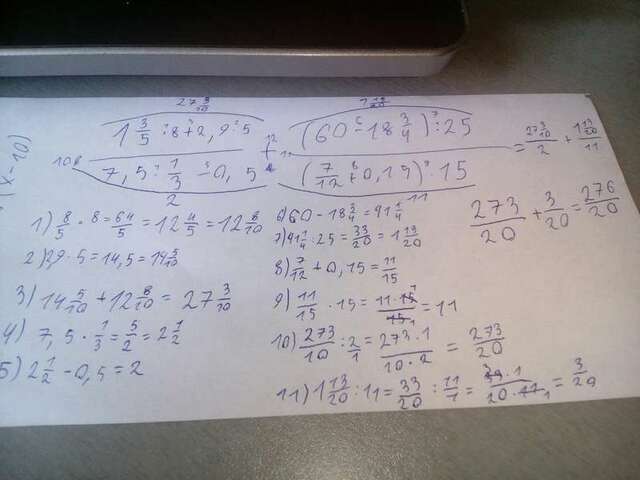 27 3/10
1 13/20
1 3/5 : 8 + 2,9 : 5
(60 - 18 3/4) : 25
= 27 3/10 / 2 + 1 13/20 / 11
7,5 : 1/3 - 0,5
(7/12 + 0,15) · 15
2
11
(x-10)
1) 8/5 · 8 = 64/5 = 12 4/5 = 12 8/10
2) 29 · 5 = 14,5 = 14 5/10
3) 14 5/10 + 12 8/10 = 27 3/10
4) 7,5 · 1/3 = 5/2 = 2 1/2
5) 2 1/2 - 0,5 = 2
6) 60 - 18 3/4 = 41 1/4
7) 41 1/4 : 25 = 33/20 = 1 13/20
8) 7/12 + 0,15 = 11/15
9) 11/15 · 15 = 11·15/15 = 11
10) 273/10 : 2/1 = 273·1/10·2 = 273/20
11) 1 13/20 : 11 = 33/20 : 11/1 = 33·1/20·11 = 3/20
273/20 + 3/20 = 276/20